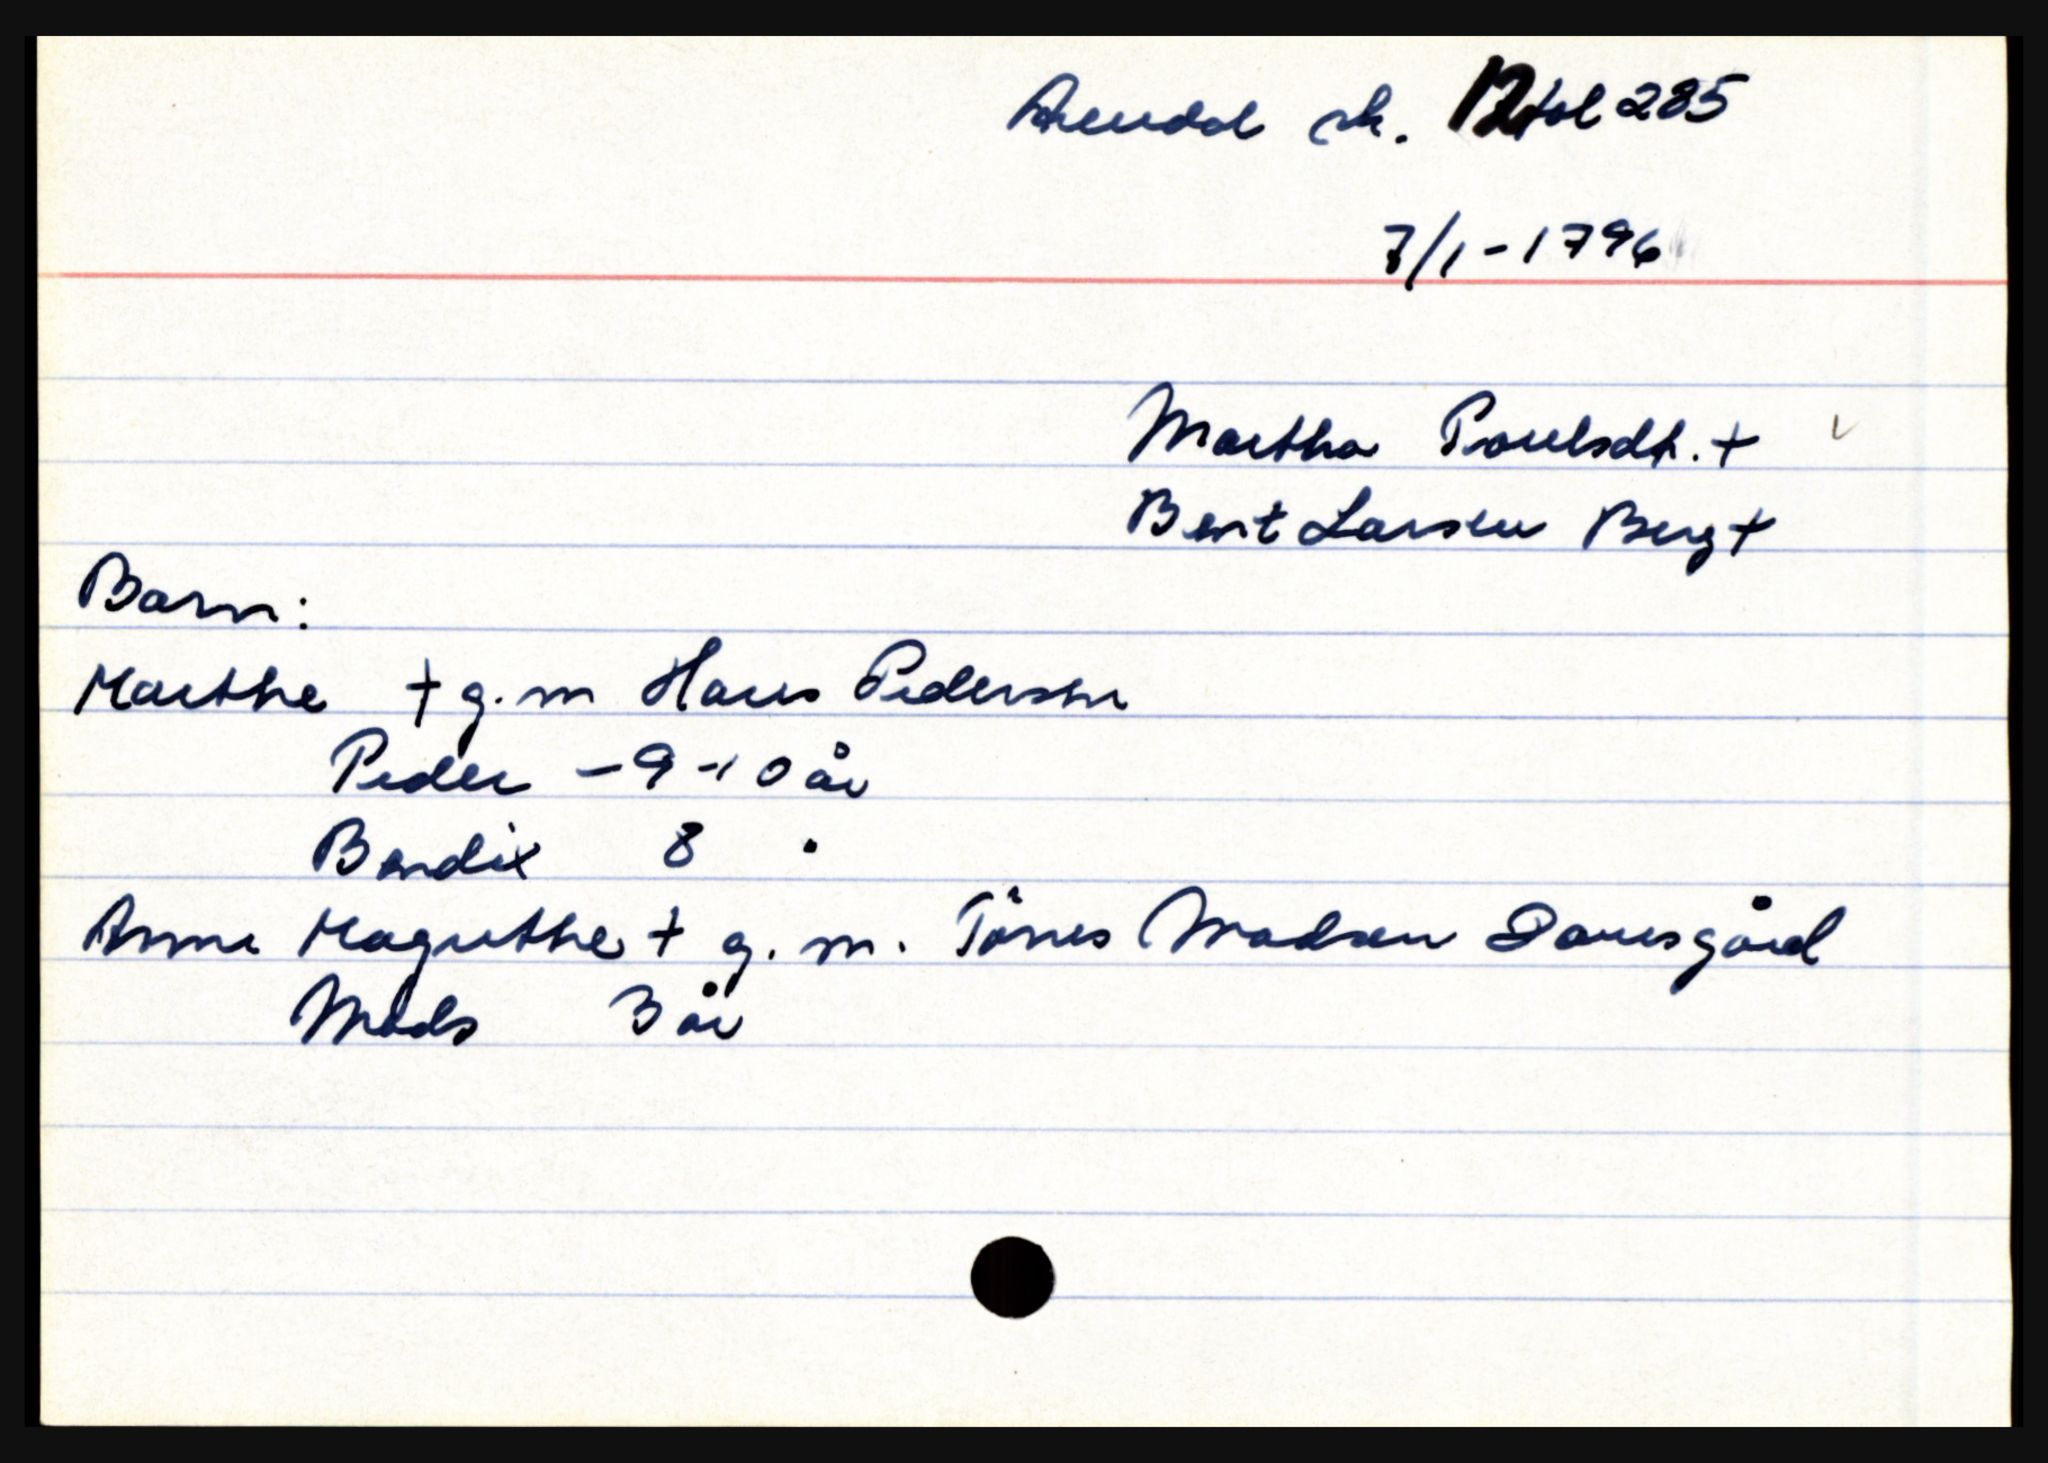 Arendal sk. 12 fol 285
7/1-1796
Martha Poulsdt. +
Bent Larsen Berg +
Barn:
Marthe + g. m Hans Pedersen
Peder - 9-10 år
Bendix 8 "
Anne Magrethe + g. m. Tönes Madsen
Mads 3 år